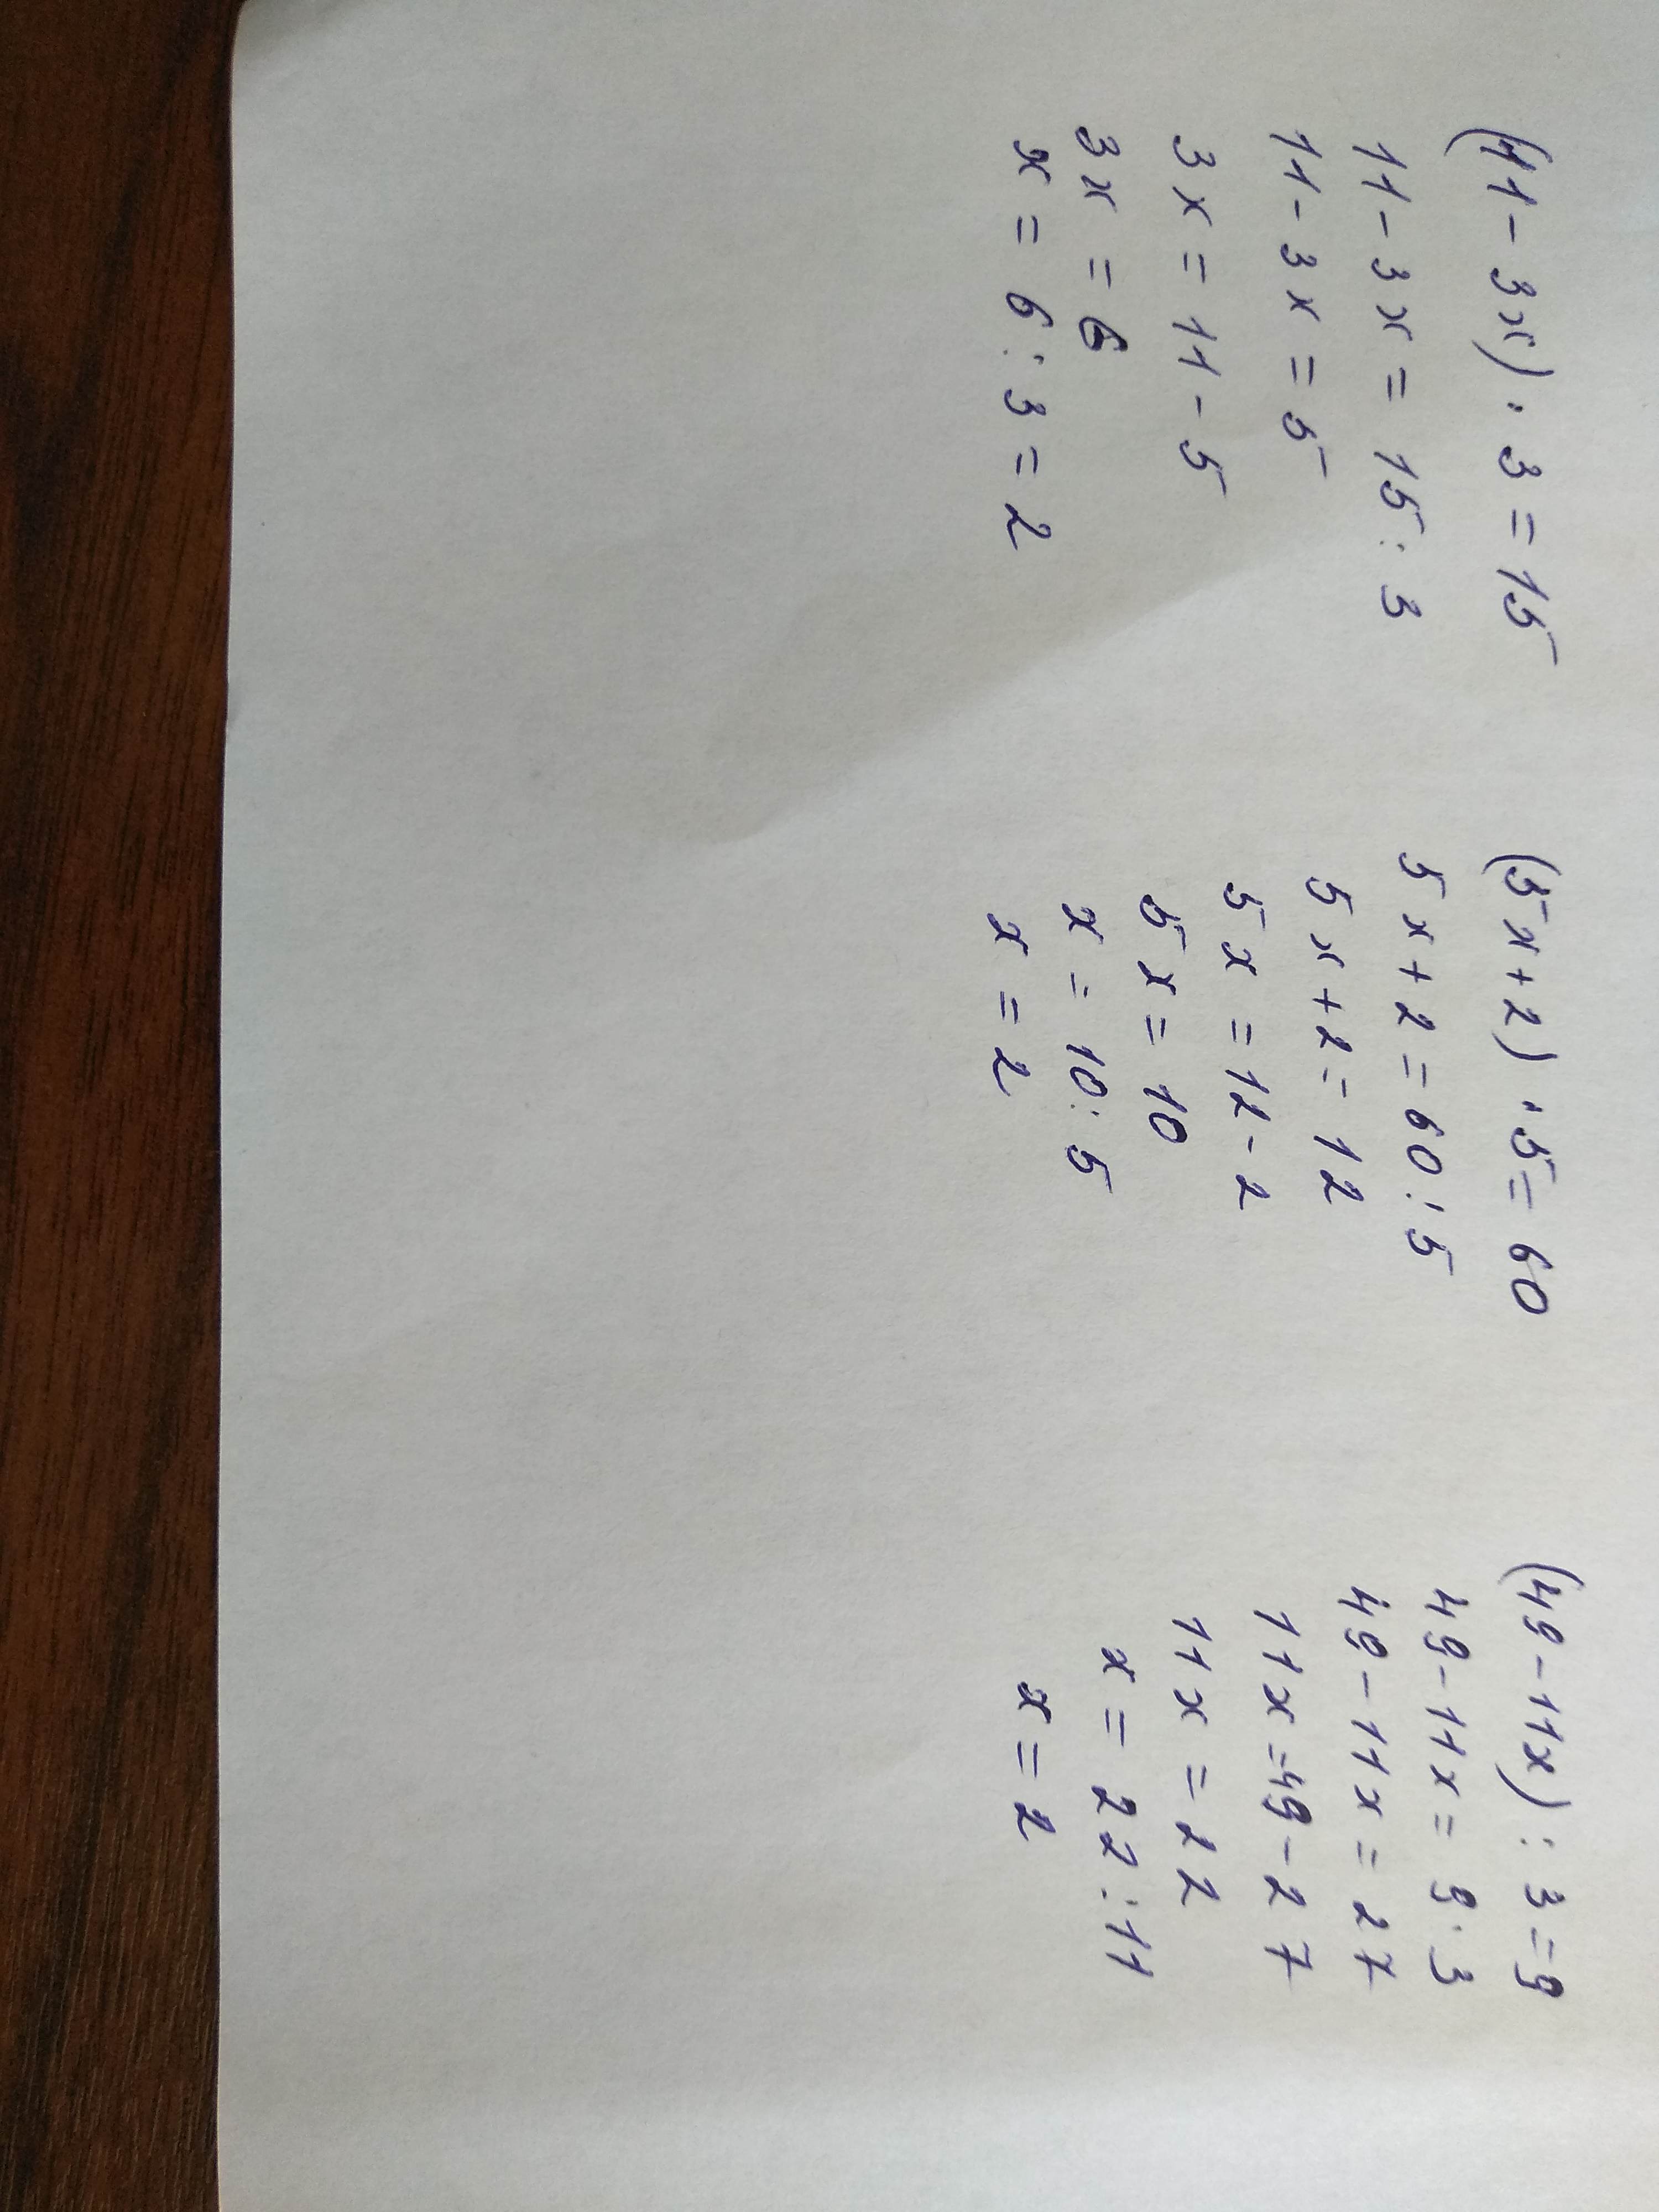 (11-3x)·3=15
11-3x=15:3
11-3x=5
3x=11-5
3x=6
x=6:3=2
(5x+2)·5=60
5x+2=60:5
5x+2=12
5x=12-2
5x=10
x=10:5
x=2
(49-11x):3=9
49-11x=9·3
49-11x=27
11x=49-27
11x=22
x=22:11
x=2